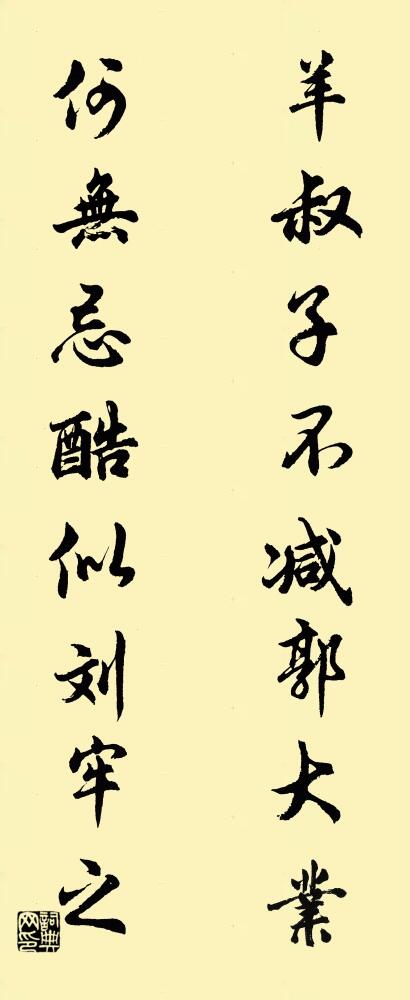 羊叔子不减郭大業
何無忌酷似刘牢之
詞典网印